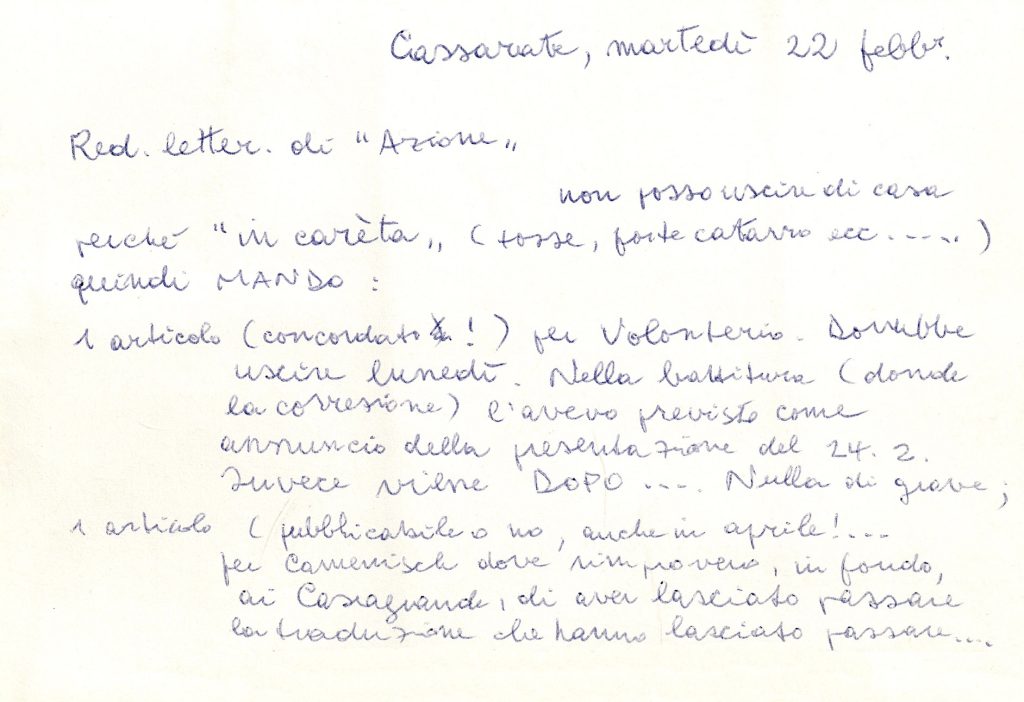 Cassarate, martedì 22 febbr.
Red. letter. di "Azione„
non posso uscire di casa
perché "in carèta„ (tosse, forte catarro ecc. .....)
quindi MANDO :
1 articolo (concordato !) per Volonterio. Dovrebbe
uscire lunedì. Nella battitura (donde
la correzione) l'avevo previsto come
annuncio della presentazione del 24. 2.
Invece viene DOPO .... Nulla di grave ;
1 articolo (pubblicabile o no, anche in aprile! ....
per Camenisch dove rimprovero, in fondo,
ai Casagrande, di aver lasciato passare
la traduzione che hanno lasciato passare....